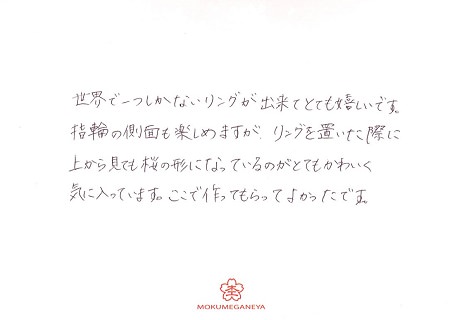 世界で一つしかないリングが出来てとても嬉しいです。
指輪の側面も楽しめますが、リングを置いた際に
上から見ても桜の形になっているのがとてもかわいく
気に入っています。ここで作ってもらってよかったです。
杢
MOKUMEGANEYA